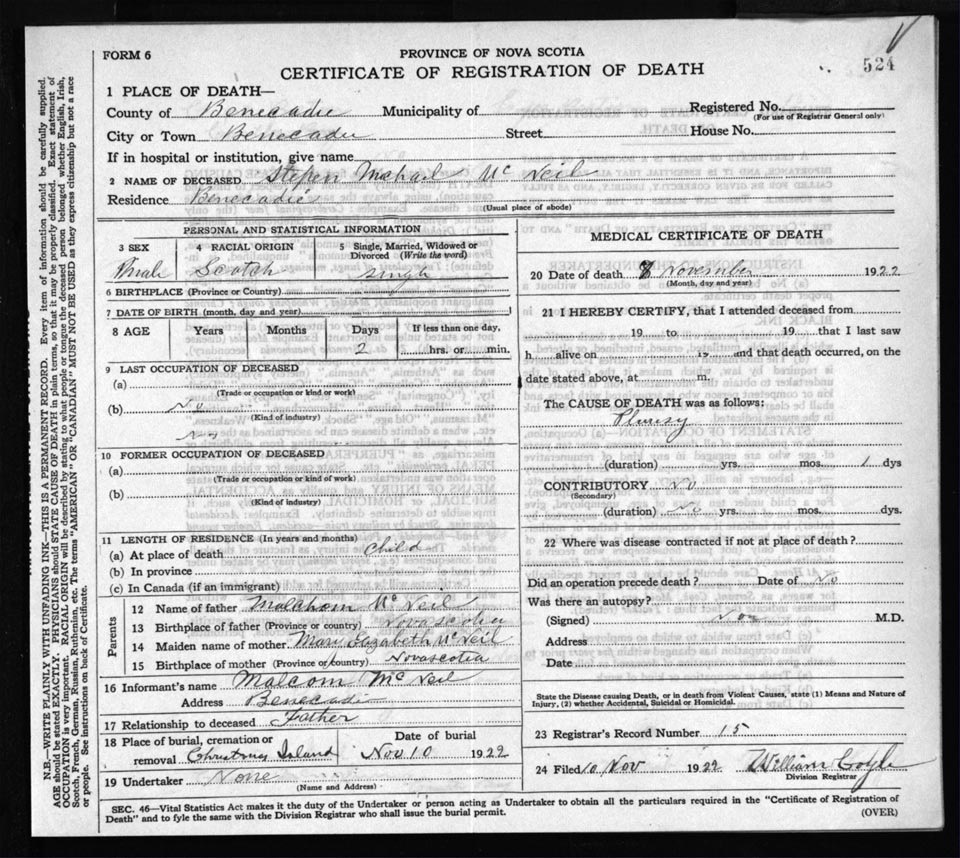 FORM 6
PROVINCE OF NOVA SCOTIA
CERTIFICATE OF REGISTRATION OF DEATH
524
1 PLACE OF DEATH—
County of Benecadie Municipality of Registered No.
(For use of Registrar General only)
City or Town Benecadie Street House No.
If in hospital or institution, give name
2 NAME OF DECEASED Stephen Michael Mc Neil
Residence Benecadie
(Usual place of abode)
PERSONAL AND STATISTICAL INFORMATION
3 SEX Male
4 RACIAL ORIGIN Scotch
5 Single, Married, Widowed or Divorced (Write the word) single
6 BIRTHPLACE (Province or Country)
7 DATE OF BIRTH (month, day and year)
8 AGE Years Months Days If less than one day,
2 hrs. or min.
9 LAST OCCUPATION OF DECEASED
(a)
(Trade or occupation or kind of work)
(b) No
(Kind of industry)
No
10 FORMER OCCUPATION OF DECEASED
(a)
(Trade or occupation or kind of work)
(b)
(Kind of industry)
11 LENGTH OF RESIDENCE (In years and months)
(a) At place of death Child
(b) In province
(c) In Canada (if an immigrant)
Parents
12 Name of father Malcham Mc Neil
13 Birthplace of father (Province or country) Novascotia
14 Maiden name of mother Mary Lizabeth Mc Neil
15 Birthplace of mother (Province or country) Novascotia
16 Informant's name Malcom Mc Neil
Address Benecadie
17 Relationship to deceased Father
18 Place of burial, cremation or removal Christmas Island
Date of burial
Nov 10 1922
19 Undertaker None
(Name and Address)
MEDICAL CERTIFICATE OF DEATH
20 Date of death 8 November 1922
(Month, day and year)
21 I HEREBY CERTIFY, that I attended deceased from
19 to 19 that I last saw
h alive on 19 and that death occurred, on the
date stated above, at m.
The CAUSE OF DEATH was as follows:
Plurisy
(duration) yrs. mos. 1 dys
CONTRIBUTORY No
(Secondary)
(duration) No yrs. mos. dys.
22 Where was disease contracted if not at place of death?
Did an operation precede death? Date of No
Was there an autopsy?
(Signed) M.D.
Address
Date
State the Disease causing Death, or in death from Violent Causes, state (1) Means and Nature of
Injury, (2) whether Accidental, Suicidal or Homicidal.
23 Registrar's Record Number 15
24 Filed 10 Nov 1922 William Coyle
Division Registrar
SEC. 46—Vital Statistics Act makes it the duty of the Undertaker or person acting as Undertaker to obtain all the particulars required in the "Certificate of Registration of
Death" and to fyle the same with the Division Registrar who shall issue the burial permit.
(OVER)
N.B.—WRITE PLAINLY WITH UNFADING INK—THIS IS A PERMANENT RECORD. Every item of information should be carefully supplied.
AGE should be stated EXACTLY. PHYSICIANS should STATE CAUSE OF DEATH in plain terms, so that it may be properly classified. Exact statement of
OCCUPATION is very important. RACIAL ORIGIN will be described by stating to what people or tongue the deceased person belonged whether English, Irish,
Scotch, French, German, Russian, Ruthenian, etc. The terms "AMERICAN" or "CANADIAN" MUST NOT BE USED as they express citizenship but not a race
or people. See instructions on back of Certificate.